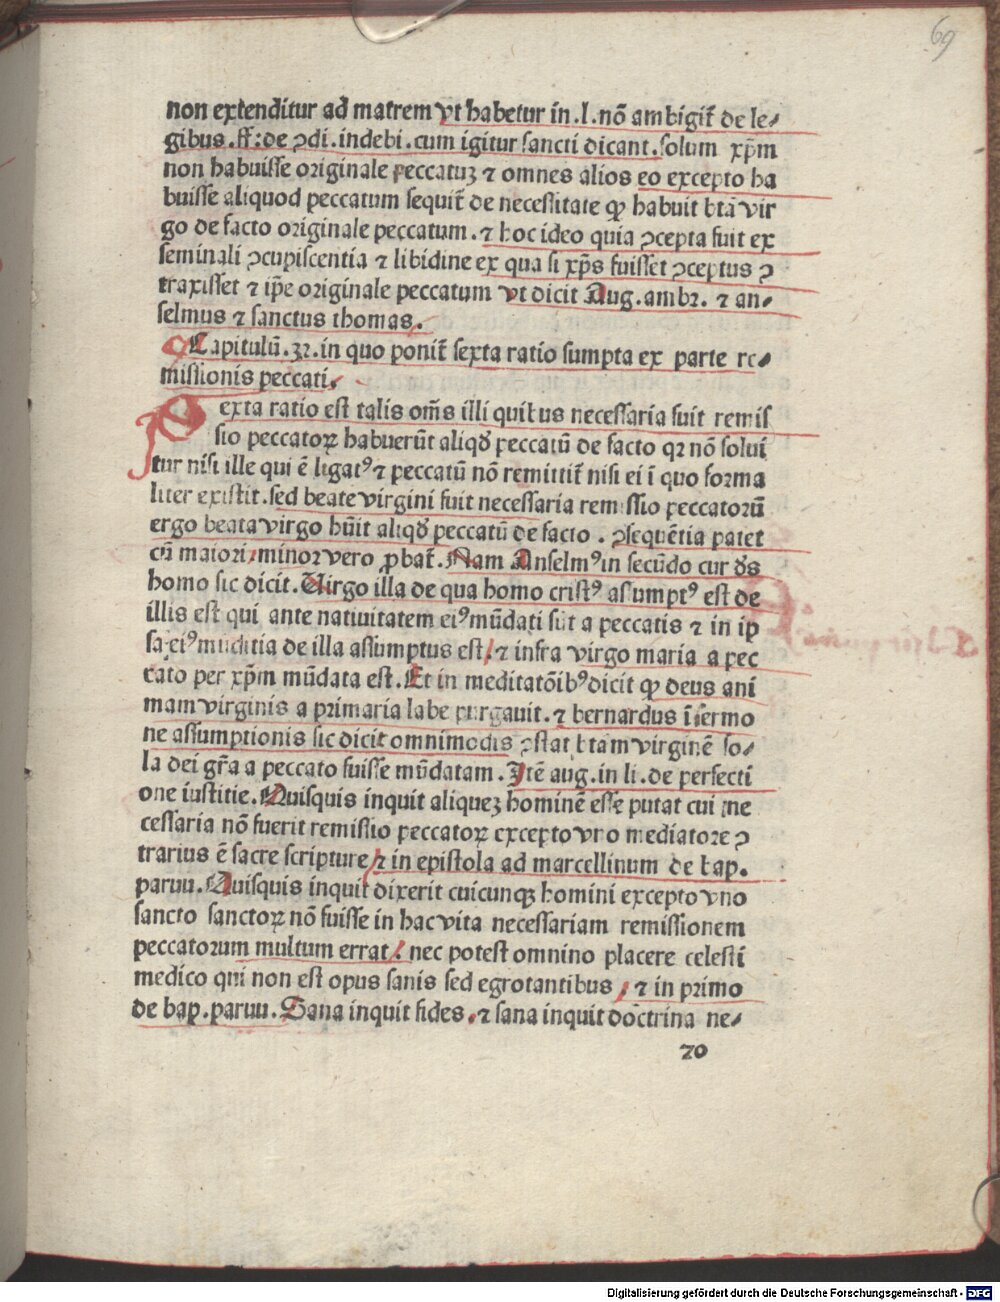 69
non extenditur ad matrem vt habetur in .l. nō ambigit̄ de le⸗
gibus. ff: de ꝯdi. indebi. cum igitur sancti dicant. solum xp̄m
non habuisse originale peccatuꝫ ⁊ omnes alios eo excepto ha
buisse aliquod peccatum sequit̄ de necessitate ꝙ habuit btā vir
go de facto originale peccatum. ⁊ hoc ideo quia ꝯcepta fuit ex
seminali ꝯcupiscentia ⁊ libidine ex qua si xp̄s fuisset ꝯceptus ꝯ
traxisset ⁊ ip̄e originale peccatum vt dicit Aug. ambr. ⁊ an⸗
selmus ⁊ sanctus thomas.
Capitulū. 32. in quo ponit̄ sexta ratio sumpta ex parte re⸗
missionis peccati.
Sexta ratio est talis om̄s illi quibus necessaria fuit remis
sio peccatoꝝ habuerūt aliqđ peccatū de facto qꝛ nō solui
tur nisi ille qui ē ligatꝰ ⁊ peccatū nō remittit̄ nisi ei ī quo forma
liter existit. sed beate virgini fuit necessaria remissio peccatorū
ergo beata virgo hūit aliqđ peccatū de facto . ꝯsequētia patet
cū maiori/ minor vero ꝓbat̄. Nam Anselmꝰ in secūdo cur đs
homo sic dicit. Virgo illa de qua homo cristꝰ assumptꝰ est de
illis est qui ante natiuitatem eiꝰ mūdati sūt a peccatis ⁊ in ip
sa eiꝰ mūditia de illa assumptus est/ ⁊ infra virgo maria a pec
cato per xp̄m mūdata est. Et in meditatōibꝰ dicit ꝙ deus ani
mam virginis a primaria labe purgauit. ⁊ bernardus ī sermo
ne assumptionis sic dicit omnimodis ꝯstat btam virginē so⸗
la dei gr̄a a peccato fuisse mūdatam. Itē aug. in li. de perfecti
one iustitie. Quisquis inquit aliqueꝫ hominē esse putat cui ne
cessaria nō fuerit remissio peccatoꝝ excepto vno mediatore ꝯ
trarius ē sacre scripture/ ⁊ in epistola ad marcellinum de bap.
paruu. Quisquis inquit dixerit cuicunqꝫ homini excepto vno
sancto sanctoꝝ nō fuisse in hac vita necessariam remissionem
peccatorum multum errat/. nec potest omnino placere celesti
medico qui non est opus sanis sed egrotantibus/ ⁊ in primo
de bap. paruu. Sana inquit fides. ⁊ sana inquit doctrina ne⸗
70
Digitalisierung gefördert durch die Deutsche Forschungsgemeinschaft - DFG